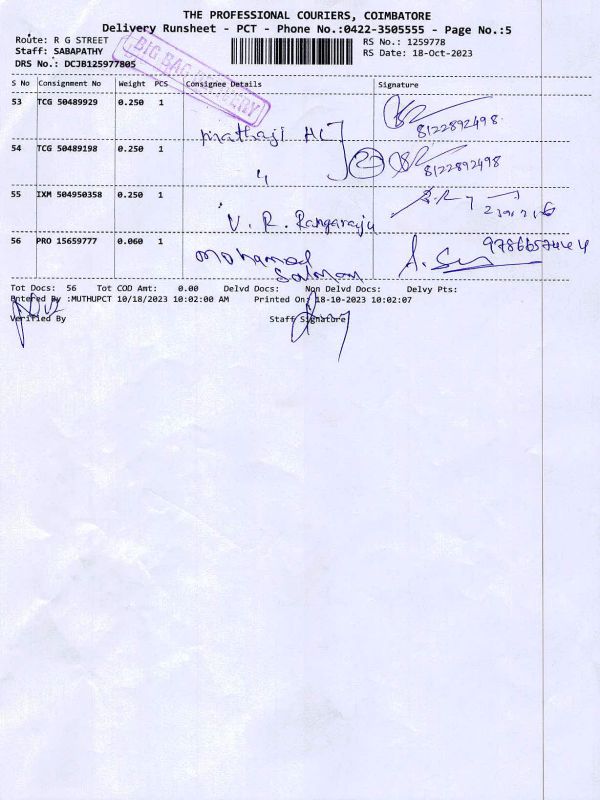 THE PROFESSIONAL COURIERS, COIMBATORE
Delivery Runsheet - PCT - Phone No.:0422-3505555 - Page No.:5
Route: R G STREET
Staff: SABAPATHY
DRS No.: DCJB125977805
RS No.: 1259778
RS Date: 18-Oct-2023
BIG BAG DELIVERY
S No Consignment No Weight PCS Consignee Details Signature
53 TCG 50489929 0.250 1
8122892498
54 TCG 50489198 0.250 1 " 2 8122892498
55 IXM 504950358 0.250 1 V. R. Rangaraju
56 PRO 15659777 0.060 1 Mohamed Salman
Tot Docs: 56 Tot COD Amt: 0.00 Delvd Docs: Non Delvd Docs: Delvy Pts:
Entered By :MUTHUPCT 10/18/2023 10:02:00 AM Printed On: 18-10-2023 10:02:07
Verified By Staff Signature